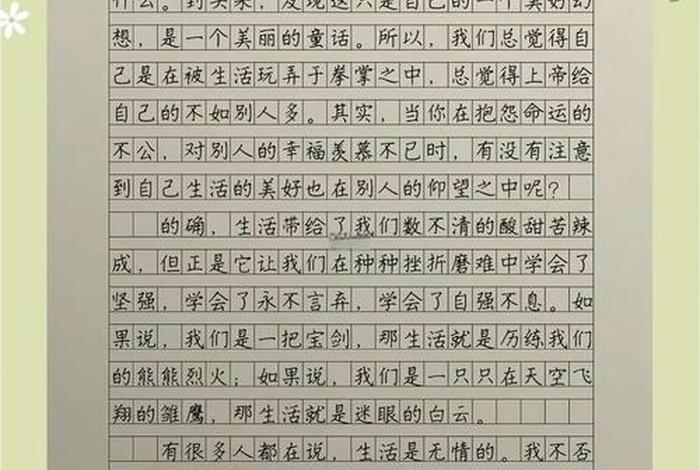 什么。到头来，发现这只是自己的一个美好幻
想，是一个美丽的童话。所以，我们总觉得自
己是在被生活玩弄于拳掌之中，总觉得上帝给
自己的不如别人多。其实，当你在抱怨命运的
不公，对别人的幸福羡慕不已时，有没有注意
到自己生活的美好也在别人的仰望之中呢？
的确，生活带给了我们数不清的酸甜苦辣
成，但正是它让我们在种种挫折磨难中学会了
坚强，学会了永不言弃，学会了自强不息。如
果说，我们是一把宝剑，那生活就是历练我们
的熊熊烈火；如果说，我们是一只只在天空飞
翔的雏鹰，那生活就是迷眼的白云。
有很多人都在说，生活是无情的。我不否